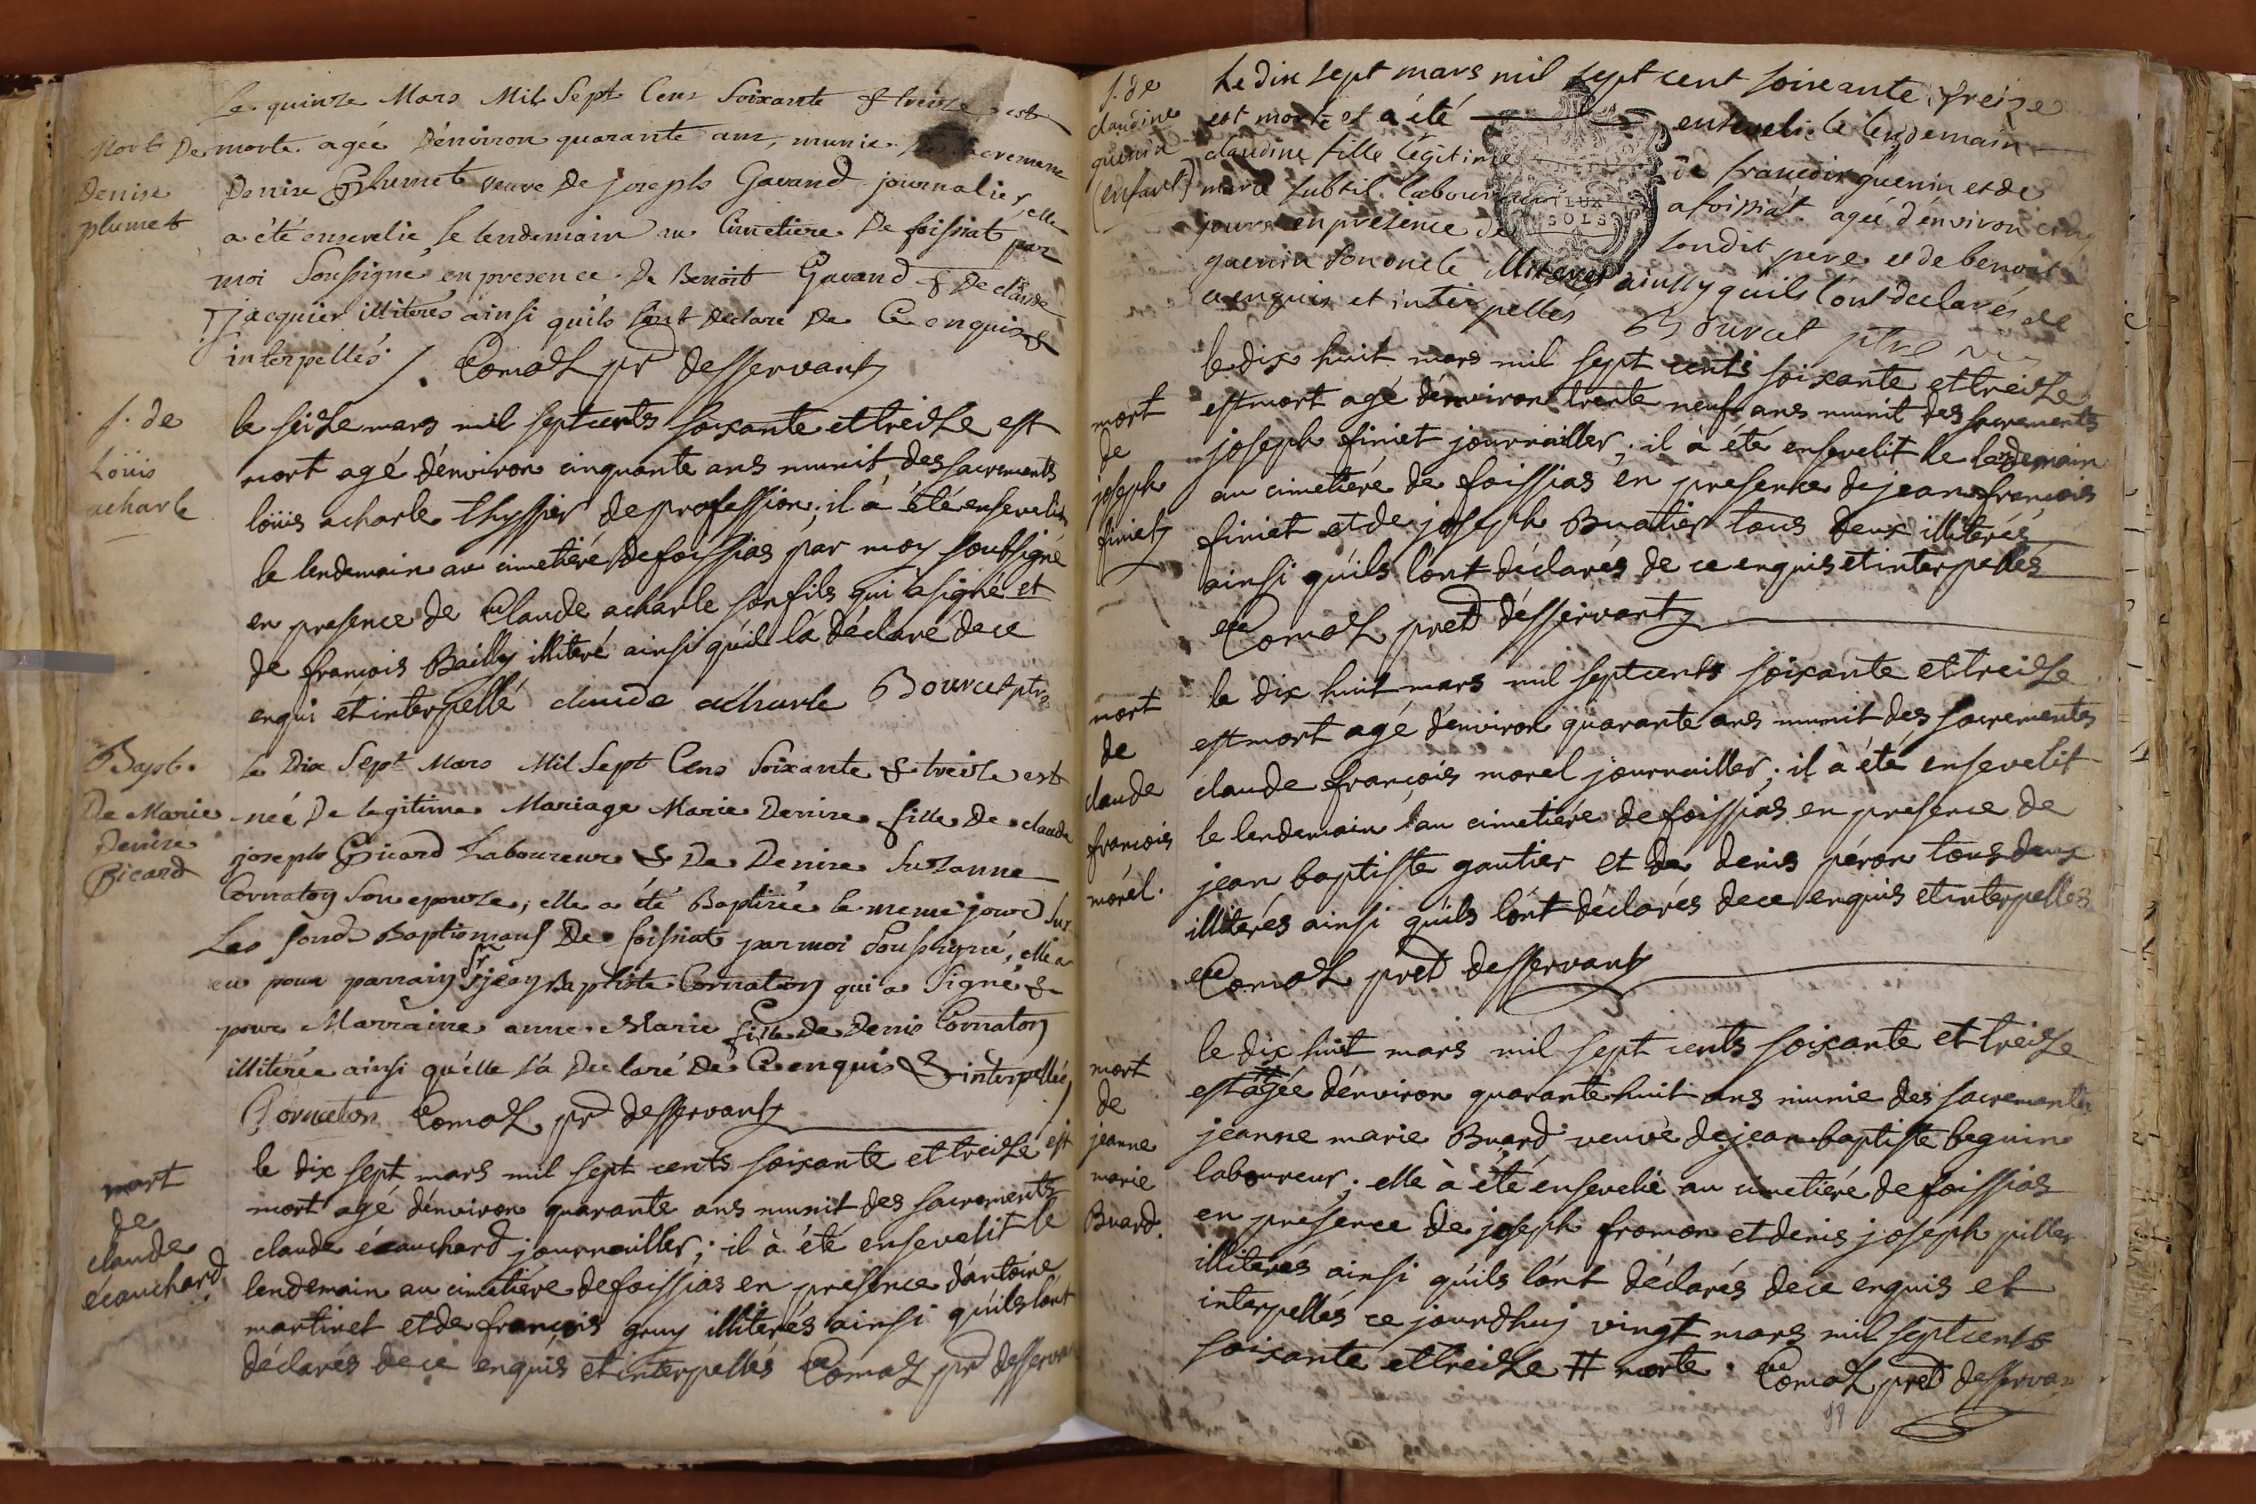 Le quinze Mars Mil Sept Cens Soixante & treize est
Mort De
Denise
plumet
morte agée D'environ quarante ans, munie sacremens
Denise Plumet veuve De joseph Gavand journalier, elle
a été ensevelie le lendemain au Cimetiere De foissiat par
moi Soussigné en presence De Benoit Gavand & De claude
jacquier illiterés ainsi qu'ils l'ont declaré De Ce enquis &
interpellés. Comas pr desservant
s. de
Loüis
acharle
le seize mars mil sept cents soixante et treize est
mort agé d'environ cinquante ans munit des sacrements
loüis acharle thyssier de profession; il à été ensevelit
le lendemain au cimetiére de foissias par moy soubsigné
en presence de Claude acharle son fils qui à signé et
de françois Bailly illiteré ainsi qu'il là déclaré de ce
enqui et interpellé claude acharle Bourcet ptre
Bapt.
De Marie
Denise
Picard
Le Dix Sept Mars Mil Sept Cens Soixante & treize est
née De legitime Mariage Marie Denise fille De claude
joseph Picard Laboureur & De Denise Suzanne
Cornaton Son epouze; elle a été Baptisée le meme jour Sur
Les fonds Baptismaux De foissiat par moi Soussigné, elle a
eu pour parrain Sr jean Baptiste Cornaton qui a Signé &
pour Marraine anne Marie fille de Denis Cornaton
illiterée ainsi qu'elle l'a Declaré De Ce enquis & interpellée
Cornaton Comas pr desservant
mort
de
claude
écauchard
le dix sept mars mil sept cents soixante et treize est
mort agé d'environ quarante ans munit des sacrements
claude écauchard journailler; il à été ensevelit le
lendemain au cimetiére de foissias en presence d'antoine
martinet et de françois gruy illiterés ainsi qu'ils l'ont
déclarés de ce enquis et interpellés Comas pr desservant
s. de
claudine
quenin
(enfant)
Le dix sept mars mil sept cent soixante treize
est morte et a été ensevelie le lendemain
claudine fille légitime de françois quenin et de
marie subtil laboureur a foissiat agée d'environ cinq
jours en présence de son dit pere et de benoit
quenin son oncle illiteres ainsy qu'ils l'ont declarés de
ce enquis et interpellés Bourcet ptre
DEUX
SOLS
mort
de
joseph
finiet
le dix huit mars mil sept cents soixante et treize
est mort agé d'environ trente neuf ans munit des sacrements
joseph finiet journailler; il à été ensevelit le lendemain
au cimetiére de foissias en presence de jean françois
finiet et de joseph Buatier tous deux illiterés
ainsi qu'ils l'ont déclarés de ce enquis et interpellés
Comas pret désservant
mort
de
claude
françois
morel.
le dix huit mars mil sept cents soixante et treize
est mort agé d'environ quarante ans munit des sacrements
claude françois morel journailler; il à été ensevelit
le lendemain au cimetiére de foissias en presence de
jean baptiste gautier et de denis péron tous deux
illiterés ainsi qu'ils l'ont déclarés de ce enquis et interpellés
Comas pret desservant
mort
de
jeanne
marie
Buard.
le dix huit mars mil sept cents soixante et treize
est # agée d'environ quarante huit ans munie des sacrements
jeanne marie Buard veuve de jean baptiste beguin
laboureur; elle à été ensevelie au cimetiére de foissias
en présence de joseph fromon et denis joseph piller
illiterés ainsi qu'ils l'ont déclarés de ce enquis et
interpellés ce jourdhuy vingt mars mil sept cents
soixante et treize # morte. Comas pret desservant
98